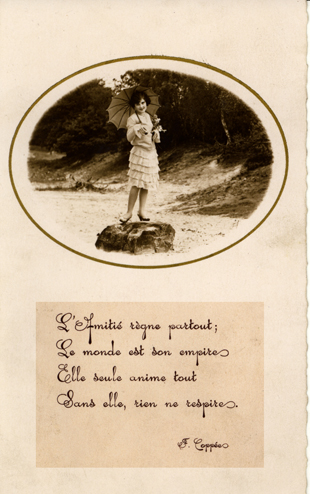 L'Amitié règne partout;
Le monde est son empire
Elle seule anime tout
Sans elle, rien ne respire.
F. Coppée